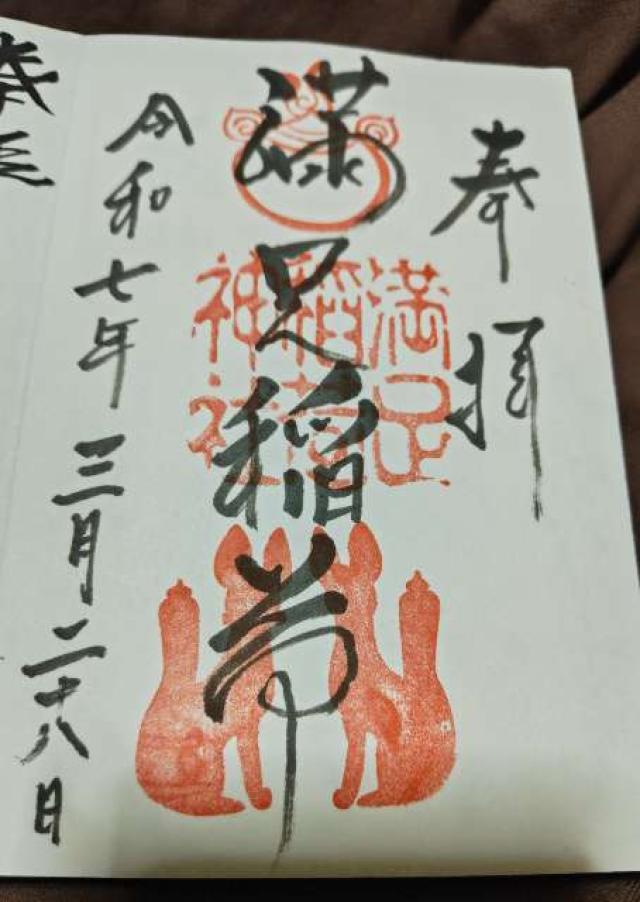 奉拝
満足稲荷
満足
稲荷
神社
令和七年三月二十八日